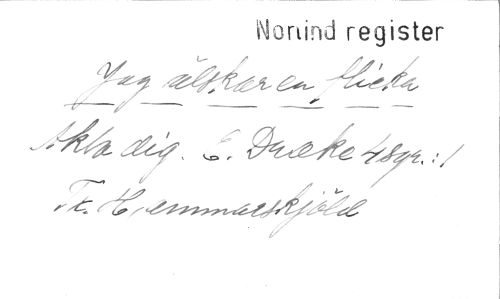 Norlind register
Jag älskar en flicka
Akta dig. E. Drake 48gr.:1
Tr. Hammarskjöld